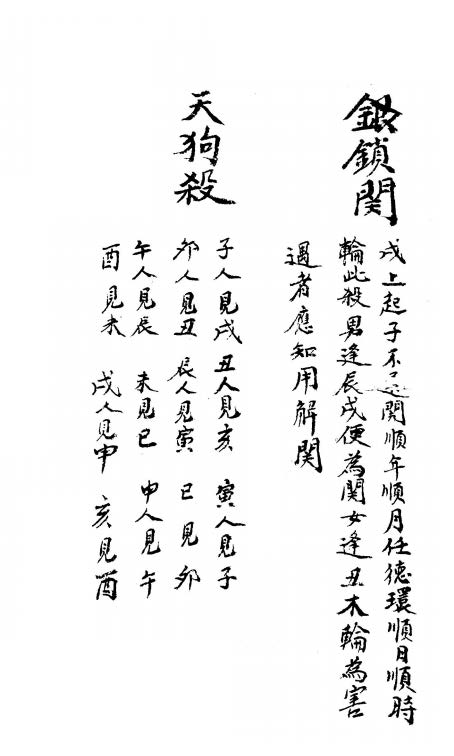 鎖関
戌上起子不是関順年順月任德環順日順時
輪此殺男逢辰戌便為関女逢丑木輪為害
遇者應知用解関
天狗殺
子人見戌 丑人見亥 寅人見子
夘人見丑 辰人見寅 巳見夘
午人見辰 未見巳 申人見午
酉見未 戌人見申 亥見酉